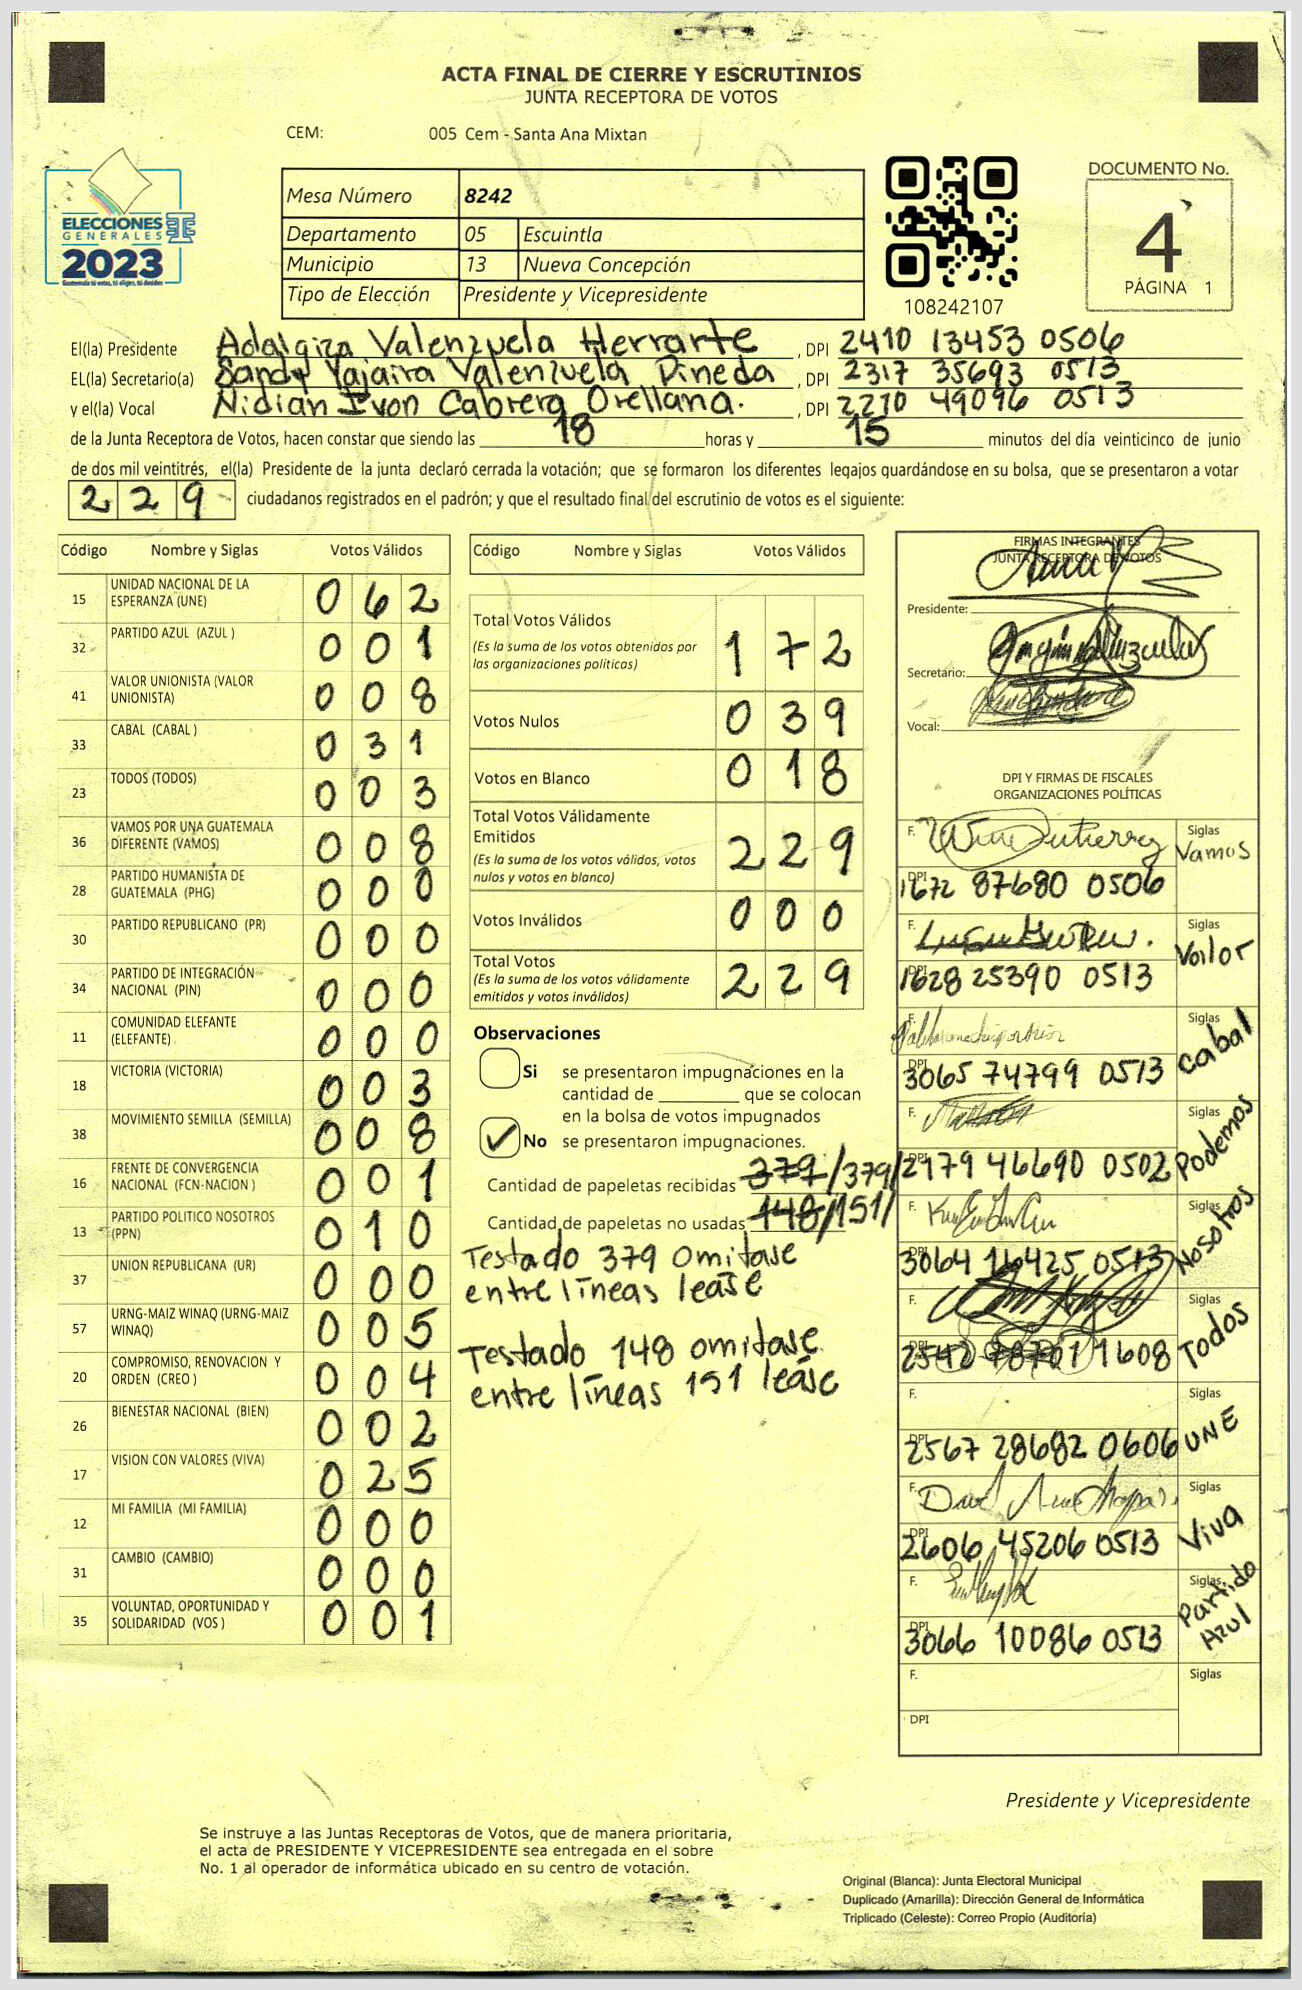 ACTA FINAL DE CIERRE Y ESCRUTINIOS
JUNTA RECEPTORA DE VOTOS
CEM: 005 Cem - Santa Ana Mixtan
ELECCIONES
GENERALES
2023
Mesa Número 8242
Departamento 05 Escuintla
Municipio 13 Nueva Concepción
Tipo de Elección Presidente y Vicepresidente
108242107
DOCUMENTO No.
4
PÁGINA 1
El(la) Presidente Adalgiza Valenzuela Herrarte, DPI 2410 13453 0506
EL(la) Secretario(a) Sandy Yajaira Valenzuela Pineda, DPI 2317 35693 0513
y el(la) Vocal Nidian Ivon Cabrera Orellana., DPI 2270 49096 0513
de la Junta Receptora de Votos, hacen constar que siendo las 18 horas y 15 minutos del día veinticinco de junio
de dos mil veintitrés, el(la) Presidente de la junta declaró cerrada la votación; que se formaron los diferentes legajos guardándose en su bolsa, que se presentaron a votar
229 ciudadanos registrados en el padrón; y que el resultado final del escrutinio de votos es el siguiente:
Código Nombre y Siglas Votos Válidos
15 UNIDAD NACIONAL DE LA
ESPERANZA (UNE) 062
32 PARTIDO AZUL (AZUL ) 001
41 VALOR UNIONISTA (VALOR
UNIONISTA) 008
33 CABAL (CABAL ) 031
23 TODOS (TODOS) 003
36 VAMOS POR UNA GUATEMALA
DIFERENTE (VAMOS) 008
28 PARTIDO HUMANISTA DE
GUATEMALA (PHG) 000
30 PARTIDO REPUBLICANO (PR) 000
34 PARTIDO DE INTEGRACIÓN
NACIONAL (PIN) 000
11 COMUNIDAD ELEFANTE
(ELEFANTE) 000
18 VICTORIA (VICTORIA) 003
38 MOVIMIENTO SEMILLA (SEMILLA) 008
16 FRENTE DE CONVERGENCIA
NACIONAL (FCN-NACION ) 001
13 PARTIDO POLITICO NOSOTROS
(PPN) 010
37 UNION REPUBLICANA (UR) 000
57 URNG-MAIZ WINAQ (URNG-MAIZ
WINAQ) 005
20 COMPROMISO, RENOVACION Y
ORDEN (CREO ) 004
26 BIENESTAR NACIONAL (BIEN) 002
17 VISION CON VALORES (VIVA) 025
12 MI FAMILIA (MI FAMILIA) 000
31 CAMBIO (CAMBIO) 000
35 VOLUNTAD, OPORTUNIDAD Y
SOLIDARIDAD (VOS ) 001
Código Nombre y Siglas Votos Válidos
Total Votos Válidos
(Es la suma de los votos obtenidos por
las organizaciones políticas) 172
Votos Nulos 039
Votos en Blanco 018
Total Votos Válidamente
Emitidos
(Es la suma de los votos válidos, votos
nulos y votos en blanco) 229
Votos Inválidos 000
Total Votos
(Es la suma de los votos válidamente
emitidos y votos inválidos) 229
Observaciones
Si se presentaron impugnaciones en la
cantidad de ________ que se colocan
en la bolsa de votos impugnados
✓ No se presentaron impugnaciones.
Cantidad de papeletas recibidas 379/379/
Cantidad de papeletas no usadas 148/151/
Testado 379 omitase
entre líneas lease
Testado 148 omitase
entre líneas 151 lease
FIRMAS INTEGRANTES
JUNTA RECEPTORA DE VOTOS
Presidente:
Secretario:
Vocal:
DPI Y FIRMAS DE FISCALES
ORGANIZACIONES POLÍTICAS
F. Siglas
Vamos
DPI 1672 87680 0506
F. Siglas
Valor
DPI 1628 25390 0513
F. Siglas
Cabal
DPI 3065 74799 0513
F. Siglas
Podemos
DPI 2179 46690 0502
F. Siglas
Nosotros
DPI 3064 16425 0513
F. Siglas
Todos
DPI 2542 78701 1608
F. Siglas
UNE
DPI 2567 28682 0606
F. Siglas
Viva
DPI 2606 45206 0513
F. Siglas
Partido
Azul
DPI 3066 10086 0513
F. Siglas
DPI
Presidente y Vicepresidente
Se instruye a las Juntas Receptoras de Votos, que de manera prioritaria,
el acta de PRESIDENTE Y VICEPRESIDENTE sea entregada en el sobre
No. 1 al operador de informática ubicado en su centro de votación.
Original (Blanca): Junta Electoral Municipal
Duplicado (Amarilla): Dirección General de Informática
Triplicado (Celeste): Correo Propio (Auditoría)